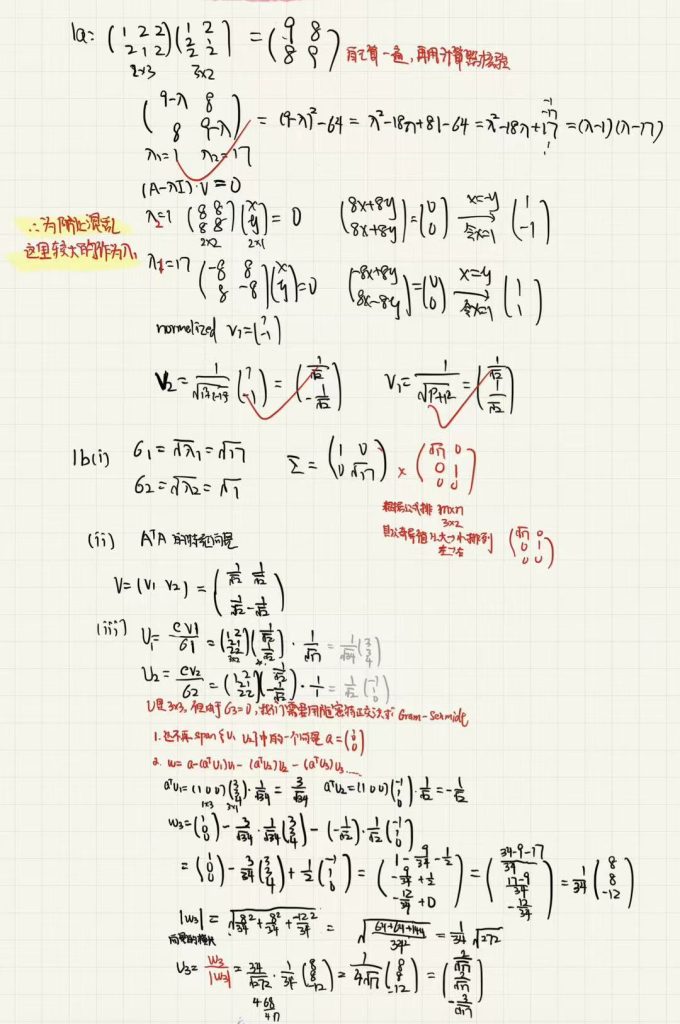 1a: (1 2 2 / 2 1 2) (1 2 / 2 1 / 2 2) = (9 8 / 8 9) 自己算一遍,再用计算器检验
2×3 3×2
(9-λ 8 / 8 9-λ) = (9-λ)² - 64 = λ² - 18λ + 81 - 64 = λ² - 18λ + 17 = (λ-1)(λ-17)
-1 -17
λ₁=1 λ₂=17
(A-λI)·v=0
∴为防止混乱
这里较大的作为λ₁
λ₂=1 (8 8 / 8 8) (x / y) = 0 (8x+8y / 8x+8y) = (0 / 0) x=-y 令x=1 → (1 / -1)
2×2 2×1
λ₁=17 (-8 8 / 8 -8) (x / y) = 0 (-8x+8y / 8x-8y) = (0 / 0) x=y 令x=1 → (1 / 1)
normalized v₂ = (1 / -1)
V₂ = 1/√(1²+(-1)²) (1 / -1) = (1/√2 / -1/√2) V₁ = 1/√(1²+1²) = (1/√2 / 1/√2)
1b(i) σ₁=√λ₁=√17 Σ = (1 0 / 0 √17) × (√17 0 / 0 1 / 0 0)
σ₂=√λ₂=√1
根据公式排 m×n
3×2
且从奇异值从大→小排列 (√17 0 / 0 1 / 0 0)
左→右
(ii) AᵀA 的特征向量
V=(v₁ v₂) = (1/√2 1/√2 / 1/√2 -1/√2)
(iii) U₁ = cv₁/σ₁ = (1 2 / 2 1 / 2 2) (1/√2 / 1/√2) · 1/√17 = 1/√34 (3 / 3 / 4)
3×2
U₂ = cv₂/σ₂ = (1 2 / 2 1 / 2 2) (1/√2 / -1/√2) · 1/1 = 1/√2 (-1 / 1 / 0)
U是3×3, 但由于σ₃=0, 我们需要用施密特正交法求 Gram-Schmidt
1. 选不再span{u₁ u₂}中的一个向量 a = (1 / 0 / 0)
2. w = a-(aᵀu₁)u₁ - (aᵀu₂)u₂ - (aᵀu₃)u₃ ....
aᵀu₁ = (1 0 0) (3 / 3 / 4) · 1/√34 = 3/√34 aᵀu₂ = (1 0 0) (-1 / 1 / 0) · 1/√2 = -1/√2
1×3 3×1
w₃ = (1 / 0 / 0) - 3/√34 · 1/√34 (3 / 3 / 4) - (-1/√2) · 1/√2 (-1 / 1 / 0)
= (1 / 0 / 0) - 3/34 (3 / 3 / 4) + 1/2 (-1 / 1 / 0) = (1 - 9/34 - 1/2 / -9/34 + 1/2 / -12/34 + 0) = (34-9-17/34 / 17-9/34 / -12/34) = 1/34 (8 / 8 / -12)
|w₃| = √(8²/34 + 8²/34 + -12²/34) = √(64+64+144/34²) = 1/34 √272
向量的模长
U₃ = w₃/|w₃| = 34/√272 · 1/34 (8 / 8 / -12) = 1/4√17 (8 / 8 / -12) = (2/√17 / 2/√17 / -3/√17)